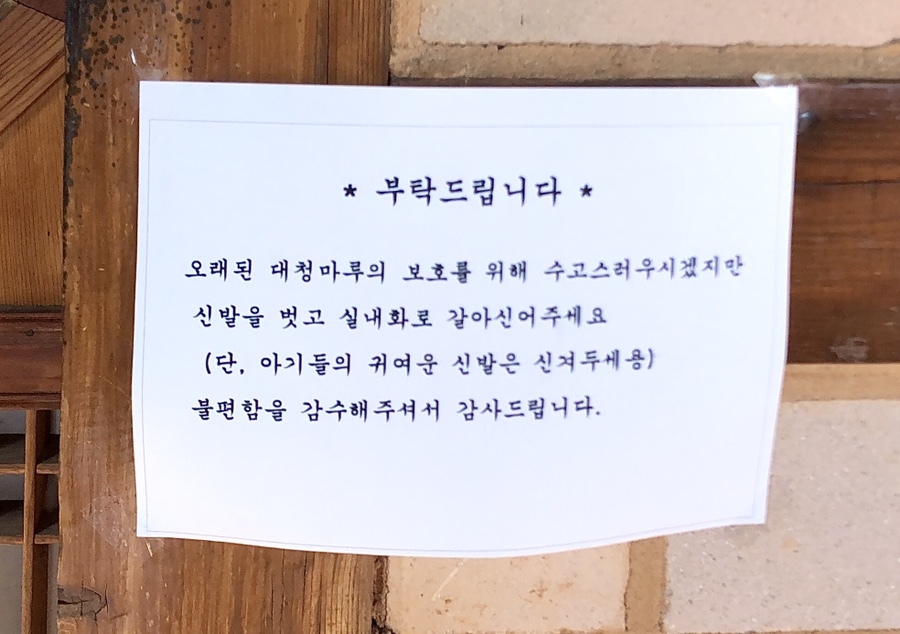 * 부탁드립니다 *
오래된 대청마루의 보호를 위해 수고스러우시겠지만
신발을 벗고 실내화로 갈아신어주세요
(단, 아기들의 귀여운 신발은 신겨두세용)
불편함을 감수해주셔서 감사드립니다.